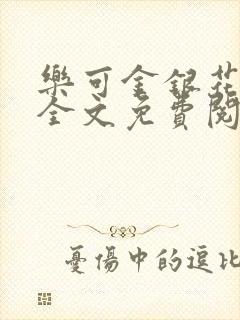 樂可金銀花
全文免費閱
憂傷中的逗比